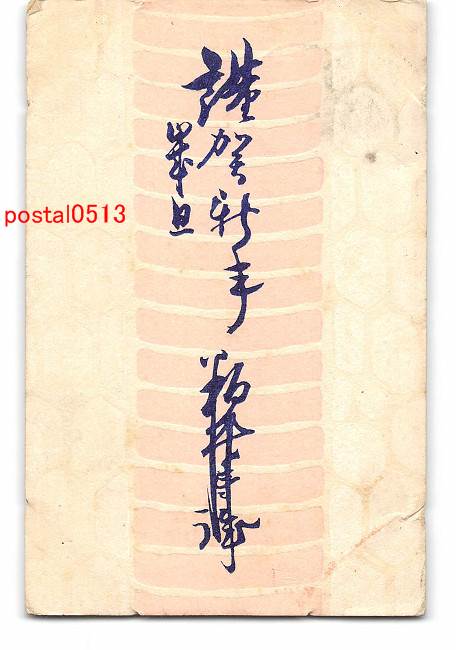 謹賀新年
歳旦
postal0513